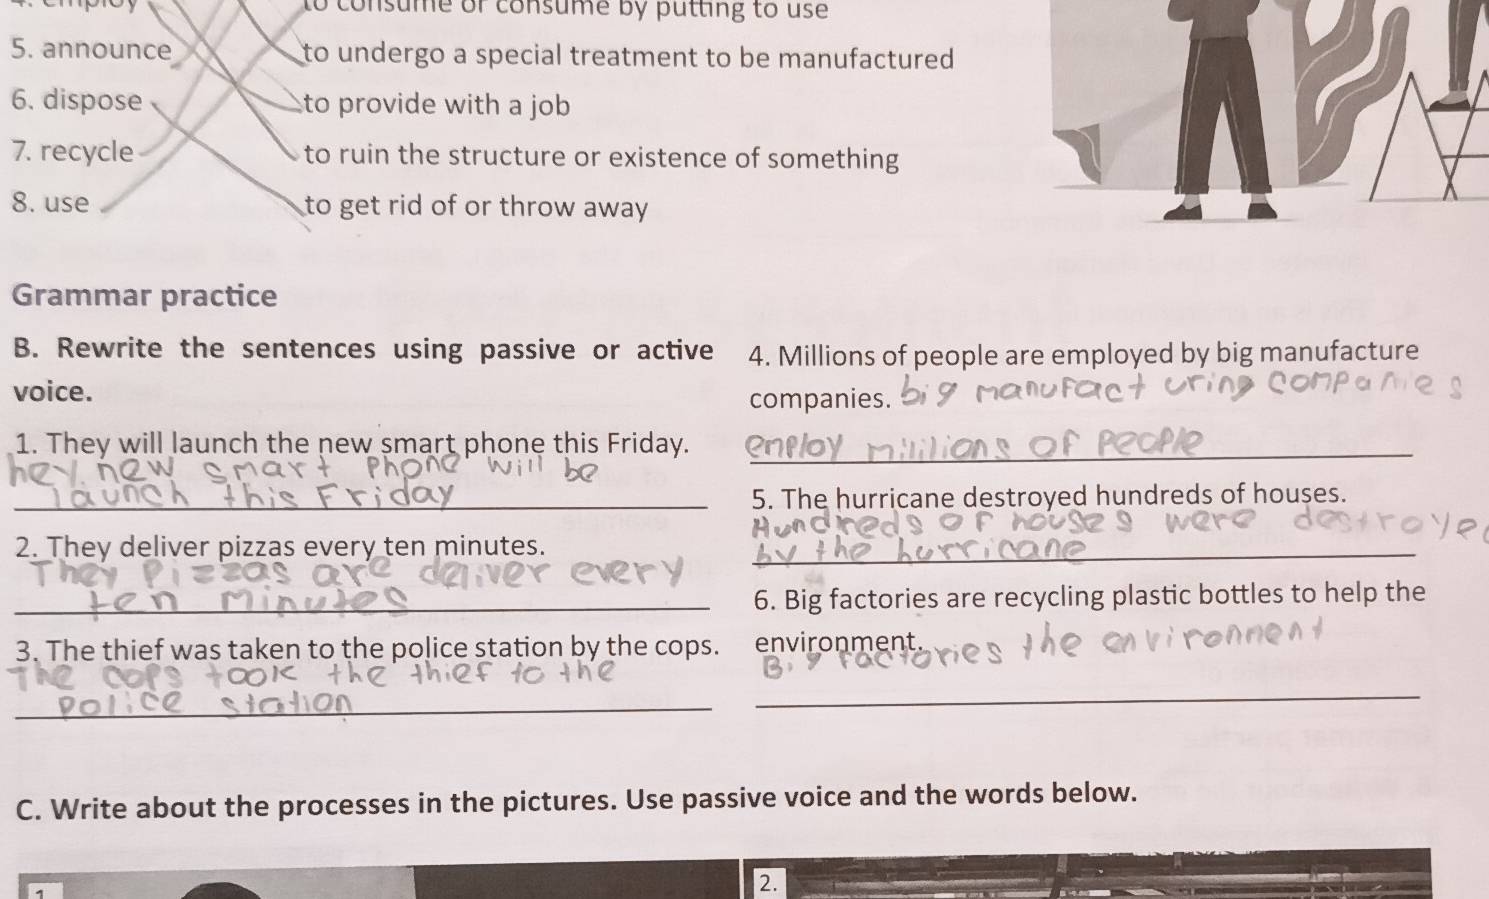 4. employ
to consume or consume by putting to use
5. announce
to undergo a special treatment to be manufactured
6. dispose
to provide with a job
7. recycle
to ruin the structure or existence of something
8. use
to get rid of or throw away
Grammar practice
B. Rewrite the sentences using passive or active
voice.
1. They will launch the new smart phone this Friday.
hey new smart phone will be
launch this Friday
2. They deliver pizzas every ten minutes.
They pizzas are deliver every
ten minutes
3. The thief was taken to the police station by the cops.
The cops took the thief to the
police station
4. Millions of people are employed by big manufacture
companies. big manufact uring companies
enploy mililions of people
5. The hurricane destroyed hundreds of houses.
Hundreds of houses were destroye
by the hurricane
6. Big factories are recycling plastic bottles to help the
environment.
Big factories the environment
C. Write about the processes in the pictures. Use passive voice and the words below.
1
2.